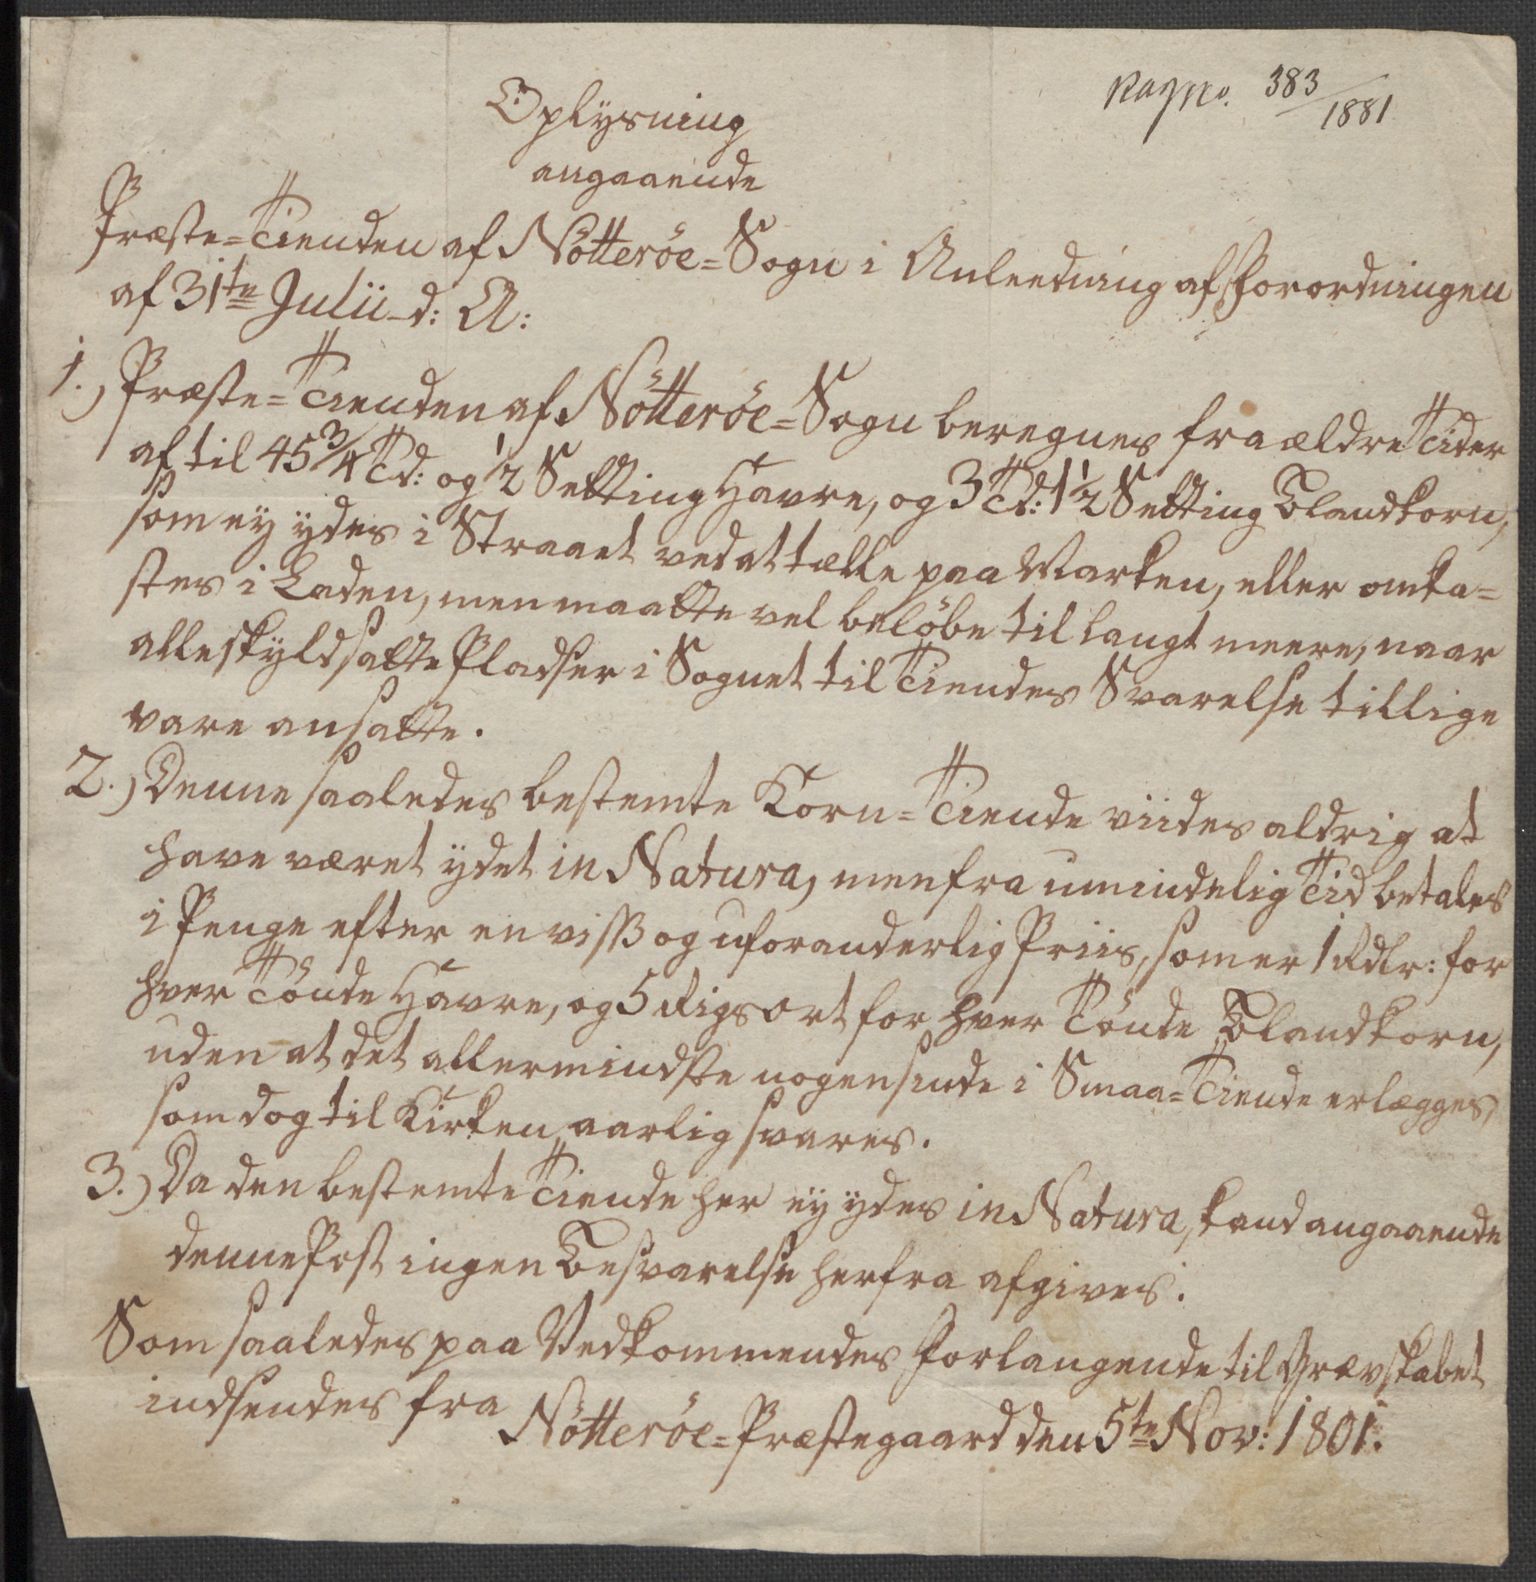 383
1881
Oplysning
angaaende
Præste=Tienden af Nötteröe=Sogn i Anleedning af Forordningen
af 31te Julii d: A:
1.) Præste=Tienden af Nötteröe=Sogn beregnes fra ældre Tider
af til 45 3/4 Td: og 1/2 Setting Havre, og 3 Td: 1 1/2 Setting Blandkorn,
som ey ydes i Straaet ved at tælle paa Marken, eller omka=
stes i Laden, men maatte vel belöbe til langt meere, naar
alle skyldsatte Pladser i Sognet til Tiendes Svarelse tillige
vare ansatte.
2.) Denne saaledes bestemte Korn=Tiende viides aldrig at
have været ydet in Natura, men fra umindelig Tid betales
i Penge efter en viss og uforanderlig Priis, som er 1 Rdlr: for
hver Tönde Havre, og 5 Rigsort for hver Tönde Blandkorn,
uden at det allermindste nogensinde i Smaa=Tiende erlægges,
som dog til Kirken aarlig svares.
3.) Da den bestemte Tiende her ey ydes in Natura, kand angaaende
denne Post ingen Besvarelse herfra afgives.
Som saaledes paa Vedkommendes Forlangende til Grævskabet
indsendes fra
Nötteröe=Præstegaard den 5te Nov: 1801.